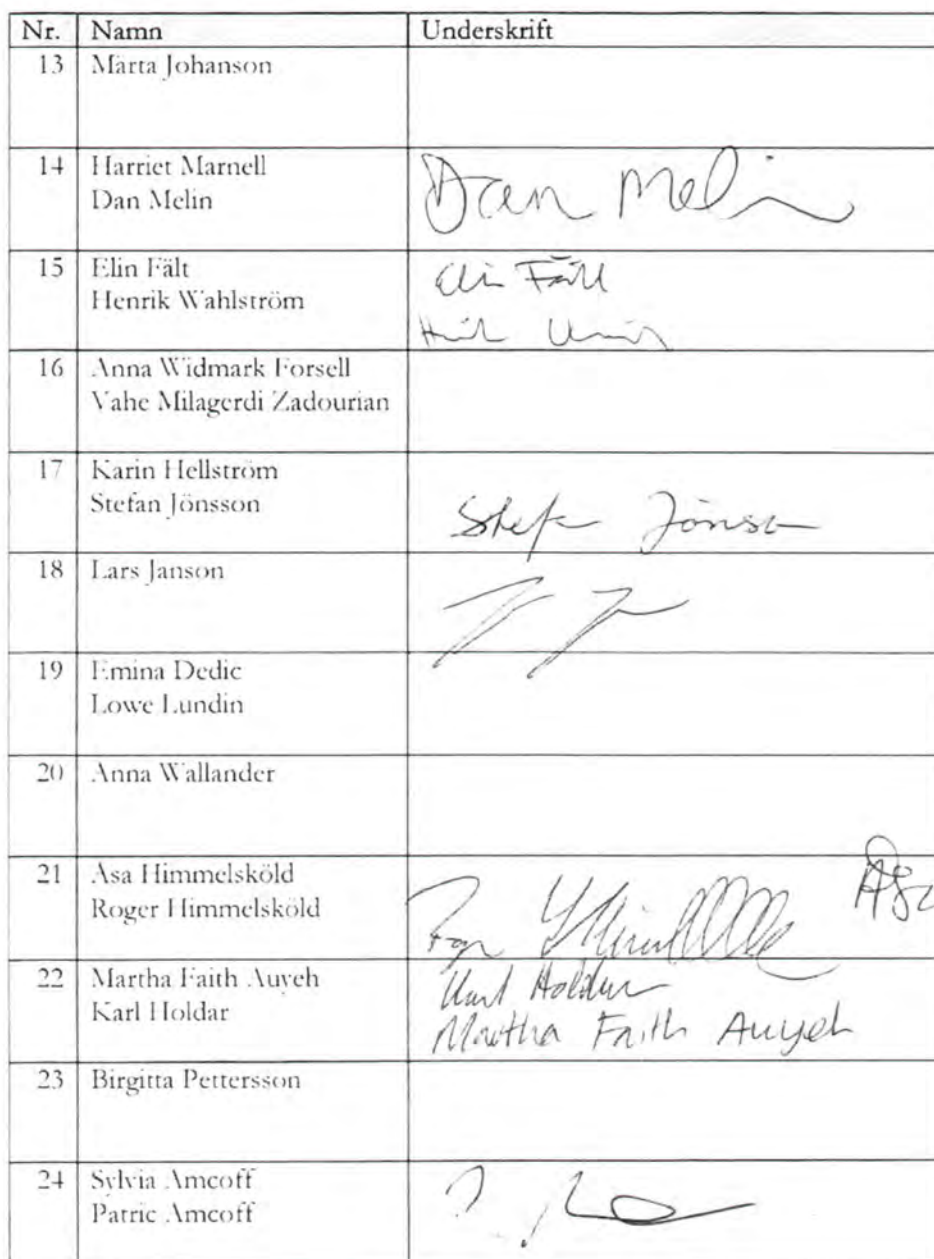 Nr. Namn Underskrift
13 Märta Johanson
14 Harriet Marnell
Dan Melin
Dan Melin
15 Elin Fält
Henrik Wahlström
Elin Fält
16 Anna Widmark Forsell
Vahe Milagerdi Zadourian
17 Karin Hellström
Stefan Jönsson
Stef Jönss
18 Lars Janson
19 Emina Dedic
Lowe Lundin
20 Anna Wallander
21 Åsa Himmelsköld
Roger Himmelsköld
22 Martha Faith Auyeh
Karl Holdar
Karl Holdar
Martha Faith Auyeh
23 Birgitta Pettersson
24 Sylvia Amcoff
Patric Amcoff